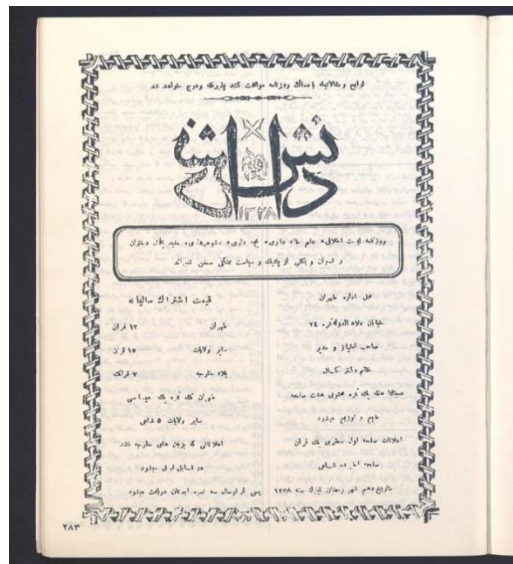 لوایح و مقالاتیکه با مسلک روزنامه موافقت کند پذیرفته و درج خواهد شد
دانش
۱۳۲۸
روزنامه ایست اخلاقی علم خانه داری بچه داری شوهرداری مفید بحال دختران
و نسوان و بکلی از پلتیک و سیاست مملکتی سخن نمیراند
محل اداره طهران
خیابان علاء الدوله نمره ۲۴
صاحب امتیاز و مدیر
خانم دکتر کحال
عجالتا هفته یک نمره محتوی هشت صفحه
طبع و توزیع میشود
اعلانات صفحه اول سطری یک قران
صفحه آخر ده شاهی
بتاریخ دهم شهر رمضان المبارک سنه ۱۳۲۸
قیمت اشتراک سالیانه
طهران ۱۲ قران
سایر ولایات ۱۵ قران
بلاد خارجه ۷ فرانک
طهران تک نمره یک عباسی
سایر ولایات ۵ شاهی
اعلاناتی که بزبان های خارجه باشد
پس از ارسال سه نمره آبونمان دریافت میشود
۲۸۳